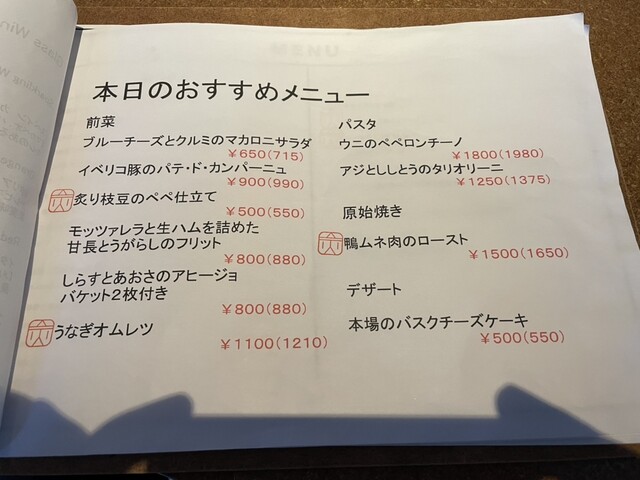 本日のおすすめメニュー
前菜
ブルーチーズとクルミのマカロニサラダ
￥650(715)
イベリコ豚のパテ・ド・カンパーニュ
￥900(990)
炙り枝豆のペペ仕立て
￥500(550)
モッツァレラと生ハムを詰めた
甘長とうがらしのフリット
￥800(880)
しらすとあおさのアヒージョ
バケット2枚付き
￥800(880)
うなぎオムレツ
￥1100(1210)
パスタ
ウニのペペロンチーノ
￥1800(1980)
アジとししとうのタリオリーニ
￥1250(1375)
原始焼き
鴨ムネ肉のロースト
￥1500(1650)
デザート
本場のバスクチーズケーキ
￥500(550)